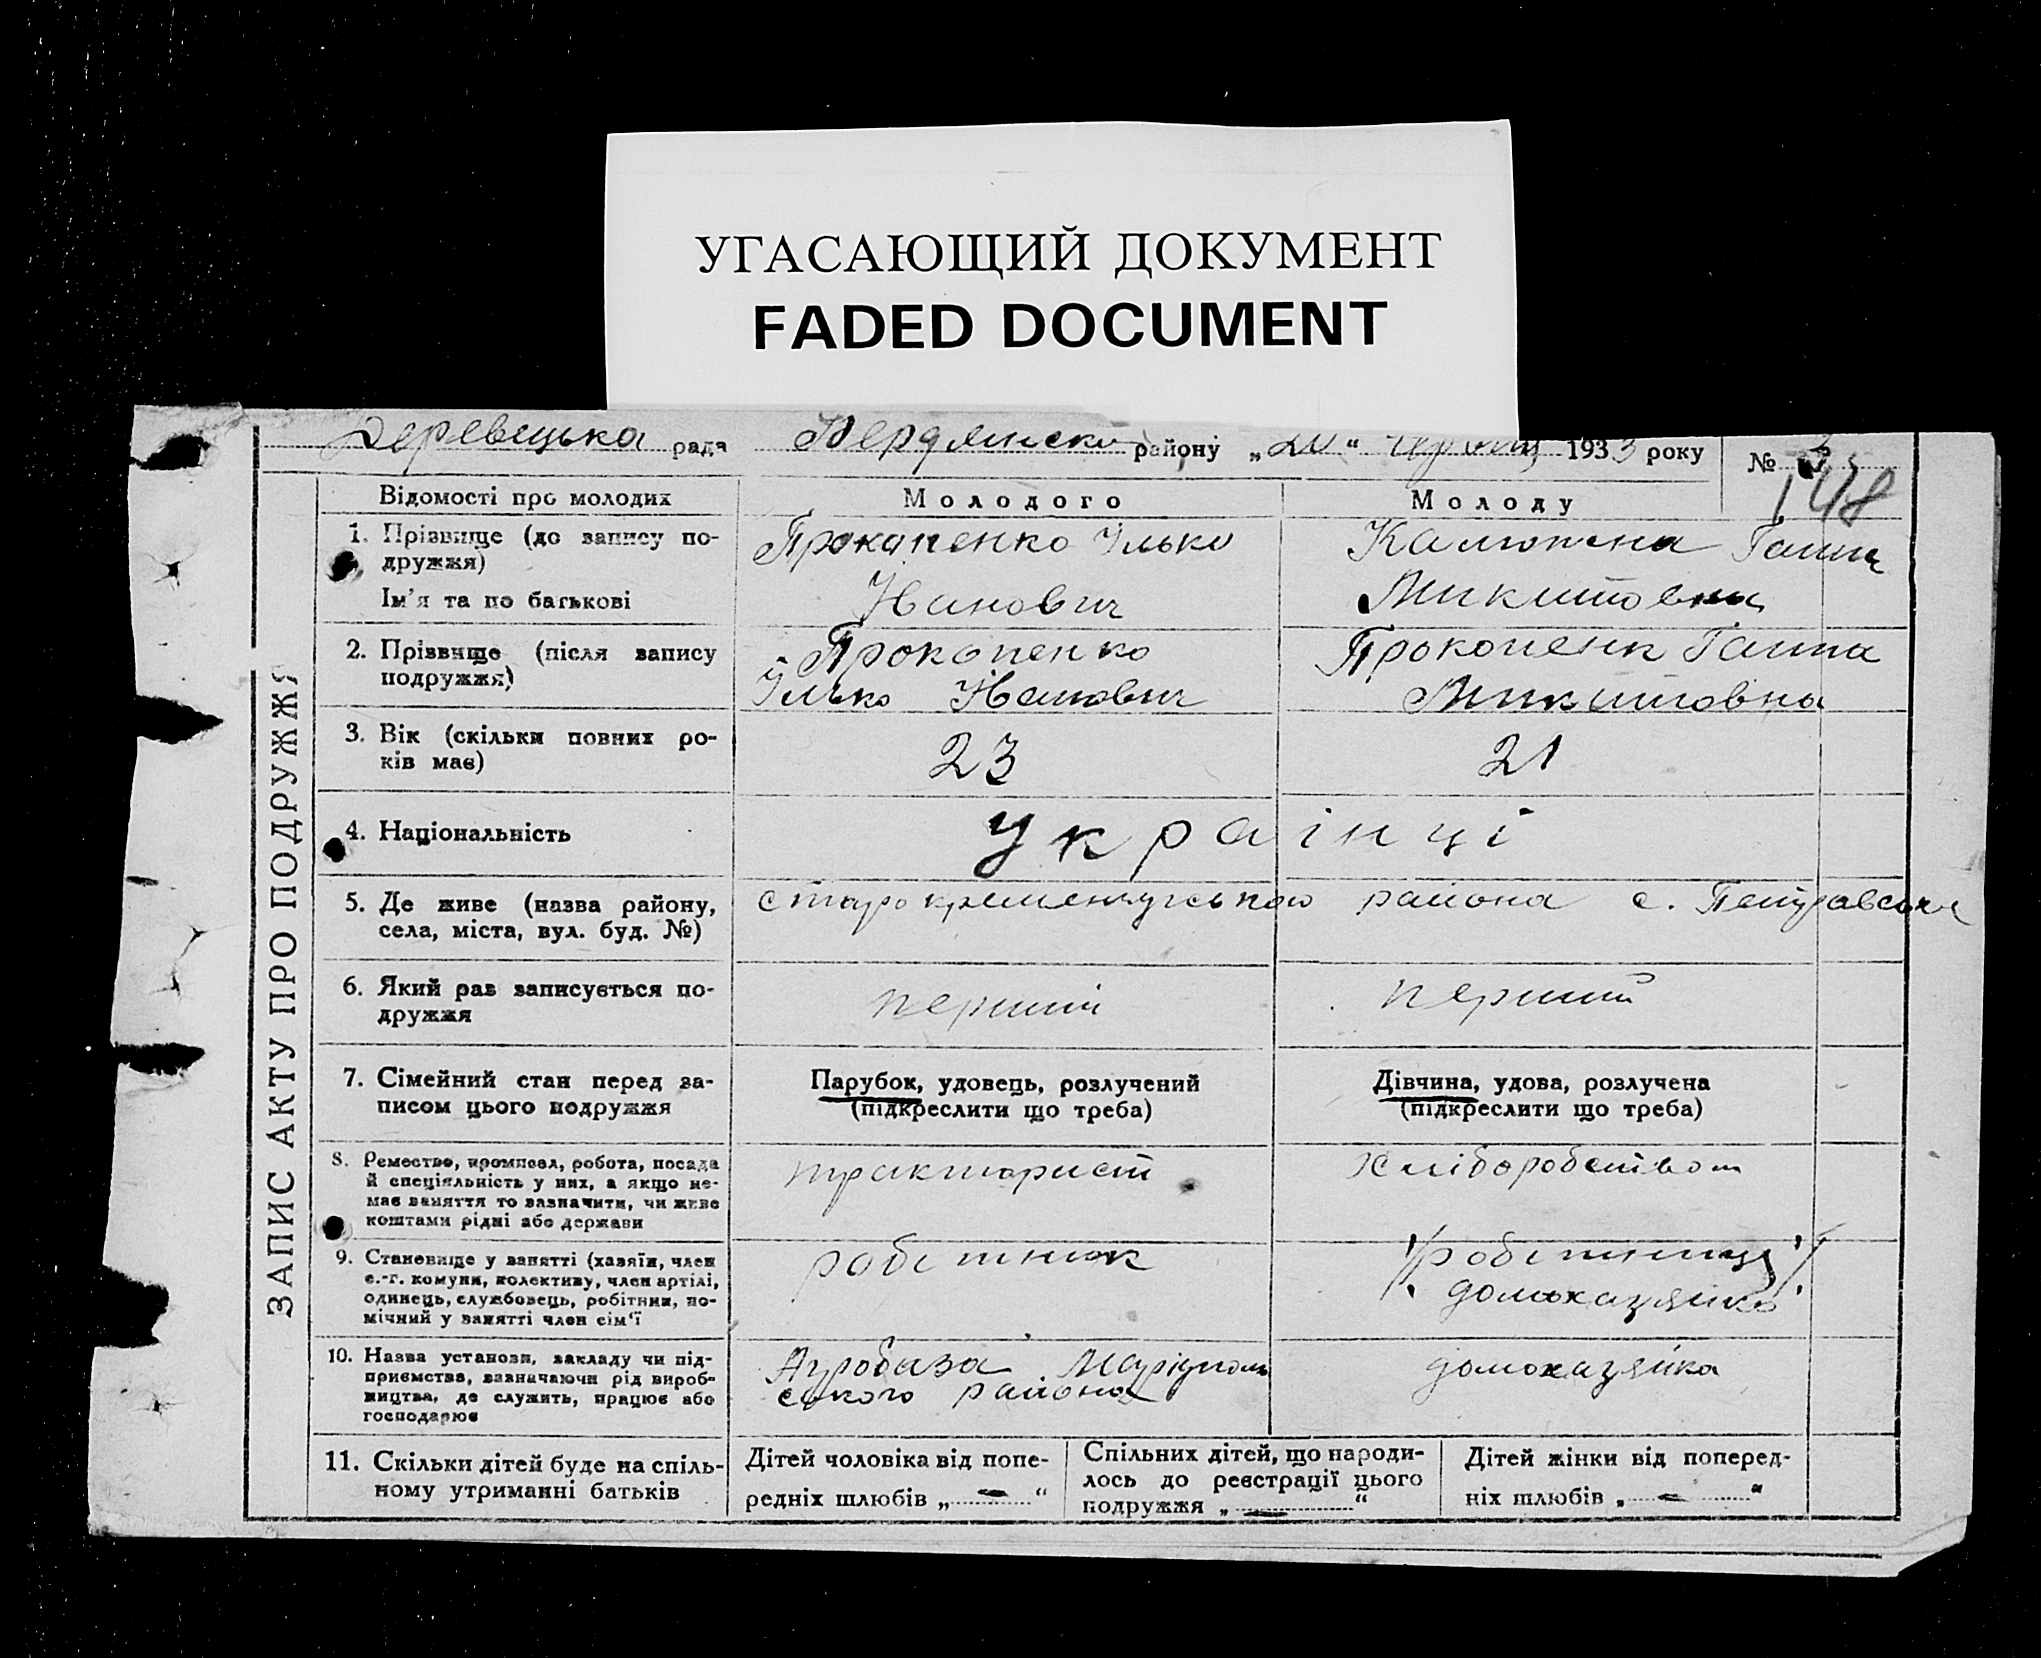 УГАСАЮЩИЙ ДОКУМЕНТ
FADED DOCUMENT
Деревецька рада Бердянско району „20“ червня 1933 року № 3
148
ЗАПИС АКТУ ПРО ПОДРУЖЖЯ
Відомості про молодих Молодого Молоду
1. Прізвище (до запису по- Прокапенко Ілько Калюжна Ганна
дружжя)
Ім'я та по батькові Иванович Микитовна
2. Прізвище (після запису Прокопенко Прокопенк Ганна
подружжя) Ілько Иванович Микитовна
3. Вік (скільки повних ро- 23 21
ків має)
4. Національність Українці
5. Де живе (назва району, старокременчугського района с.
села, міста, вул. буд. №)
6. Який раз записується по- перший перший
дружжя
7. Сімейний стан перед за- Парубок, удовець, розлучений Дівчина, удова, розлучена
писом цього подружжя (підкреслити що треба) (підкреслити що треба)
8. Ремество, промисел, робота, посада тракторист Хліборобством
й спеціяльність у них, а якщо не-
має заняття то зазначити, чи живе
коштами рідні або держави
9. Становище у занятті (хазяїн, член робітник робітниця
с.-г. комуни, колективу, член артілі, домохазяйка
одинець, службовець, робітник, по-
мічний у занятті член сім'ї
10. Назва установи, закладу чи під- Агробаза Маріуполь домохазяйка
приємства, зазначаючи рід вироб- ського района
ництва, де служить, працює або
господарює
11. Скільки дітей буде на спіль- Дітей чоловіка від попе- Спільних дітей, що народи- Дітей жінки від поперед-
ному утриманні батьків редніх шлюбів „—“ лось до реєстрації цього ніх шлюбів „—“
подружжя „—“